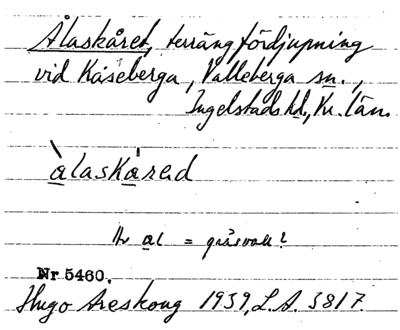 Ålaskåret, terrängfördjupning
vid Kåseberga, Valleberga sn.,
Ingelstads hd., Kr. län.
àlaskáred
al = gräsvall?
Nr 5460.
Hugo Areskoug 1939, L.A. 3817.